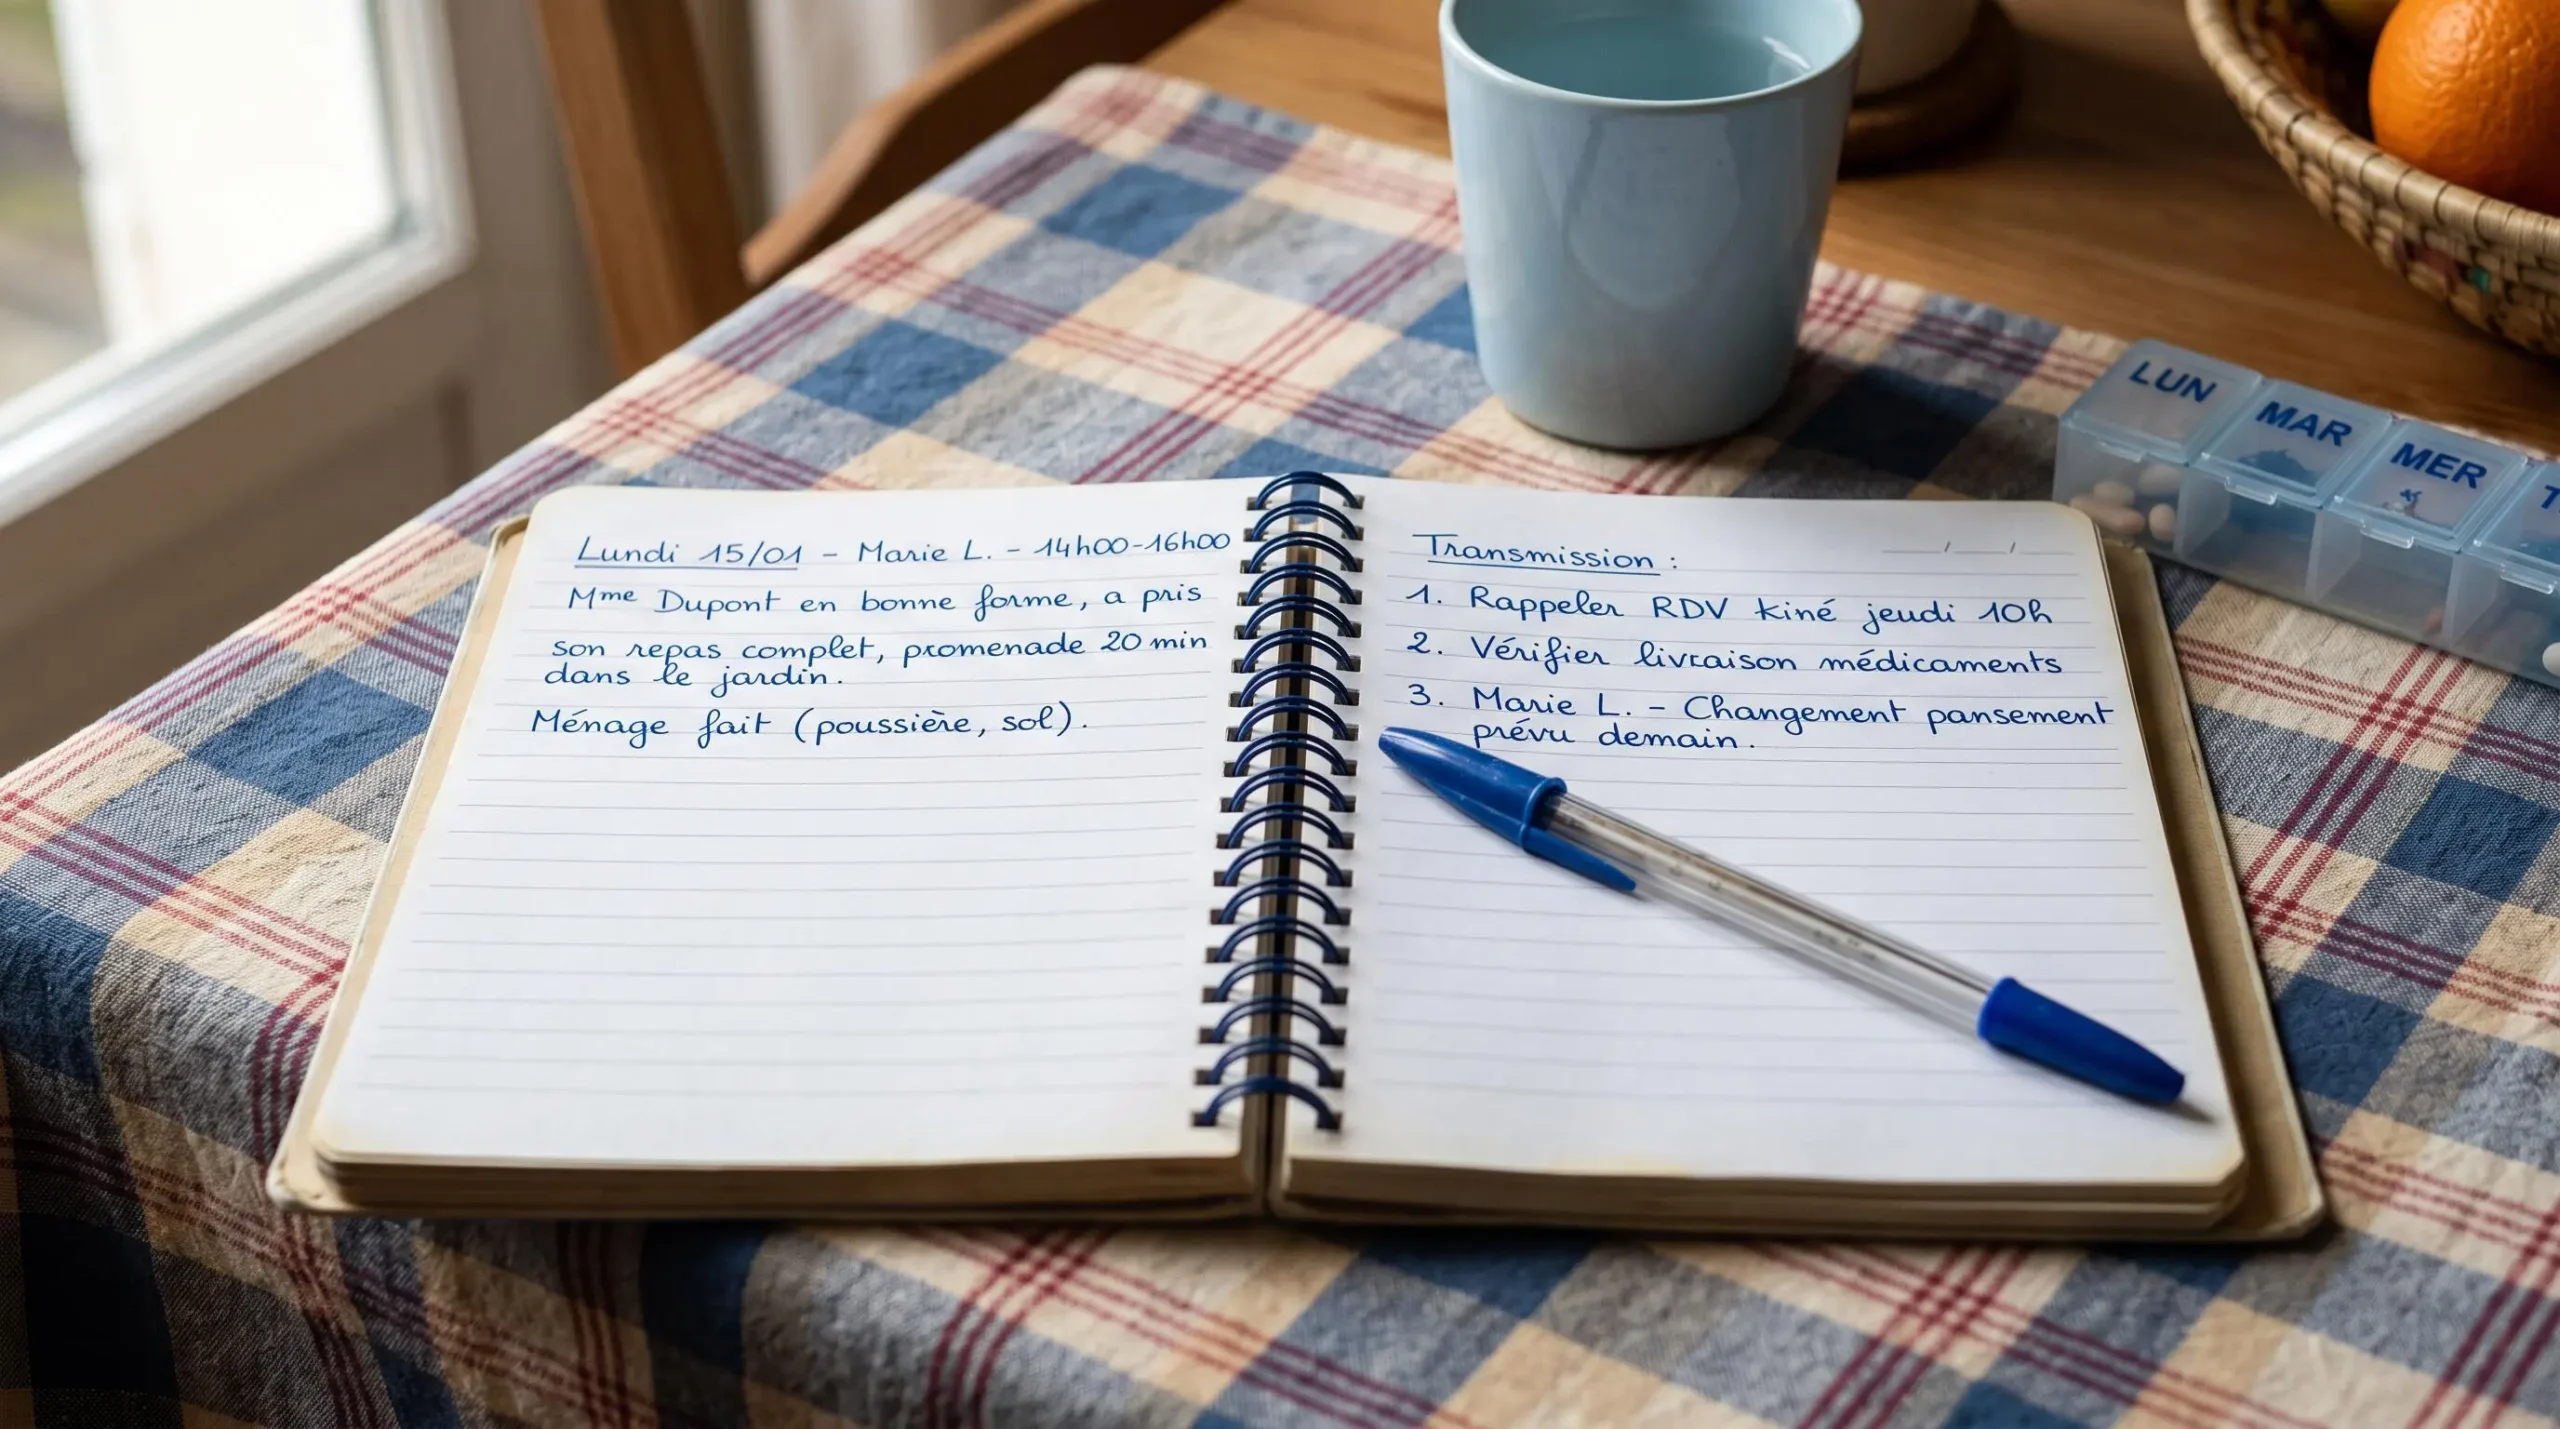 Lundi 15/01 - Marie L. - 14h00-16h00
Mme Dupont en bonne forme, a pris
son repas complet, promenade 20 min
dans le jardin.
Ménage fait (poussière, sol).
Transmission :
1. Rappeler RDV kiné jeudi 10h
2. Vérifier livraison médicaments
3. Marie L. - Changement pansement
prévu demain.
LUN
MAR
MER